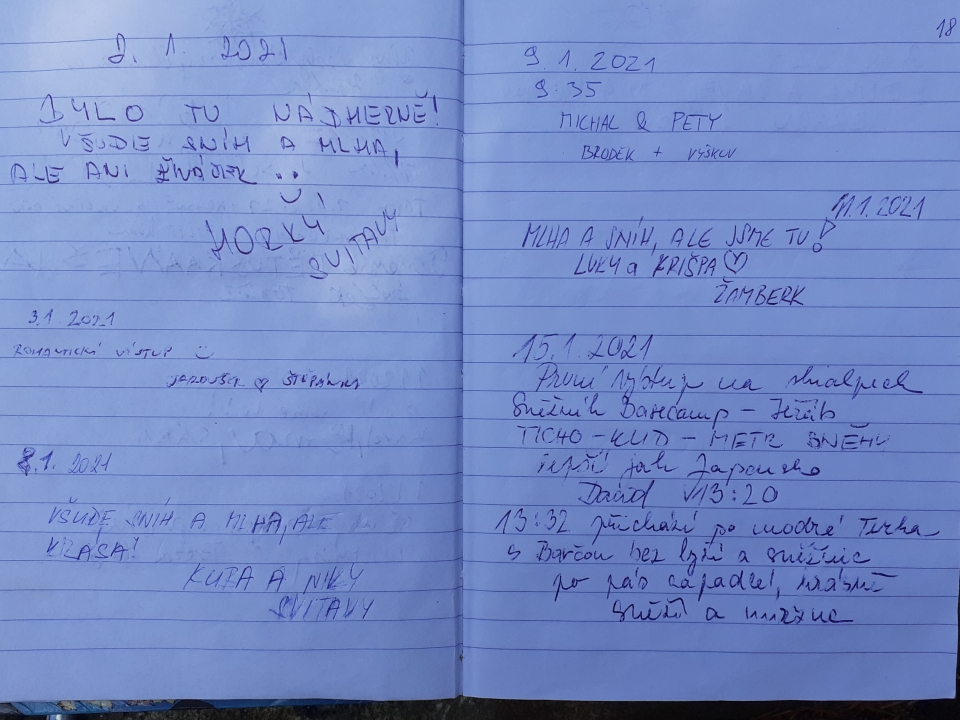 2. 1. 2021
BYLO TU NÁDHERNĚ!
VŠUDE SNÍH A MLHA,
ALE ANI ŽIVÁČEK ..
HORKÝ
SVITAVY
3.1. 2021
ROMANTICKÍ VÍSTUP
JAROUŠEK ♡ ŠTĚPÁNKA
8.1. 2021
VŠUDE SNÍH A MLHA, ALE
KRÁSA!
KUBA A NIKY
SVITAVY
18
9.1.2021
9:35
MICHAL & PETY
BRODEK + VYŠKOV
11.1.2021
MLHA A SNÍH, ALE JSME TU!
LUKY a KRIŠPA ♡
ŽAMBERK
15.1.2021
První výstup na skialpech
Sněžník Basecamp - Jeřáb
TICHO - KLID - METR SNĚHU
lepší jak Japonsko
David v 13:20
13:32 přichází po modré Terka
s Barčou bez lyží a sněžnic
po pás zapadlé, krásně
sněží a mrzne